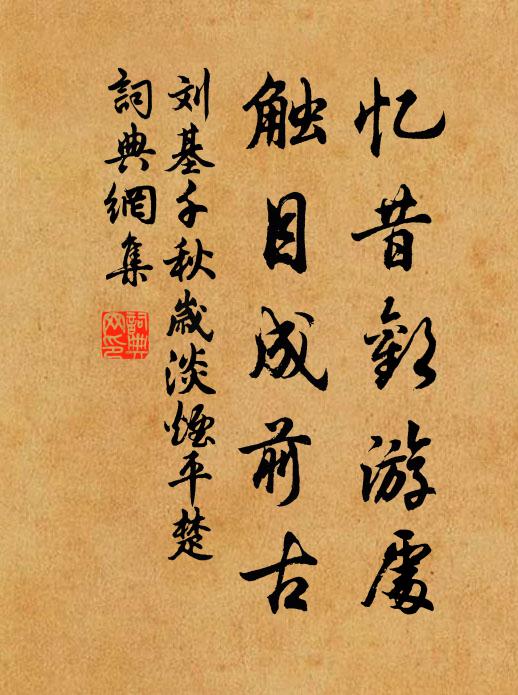 忆昔欢游處
触目成前古
刘基千秋歲淡煙平楚
詞典網集
詞典网印